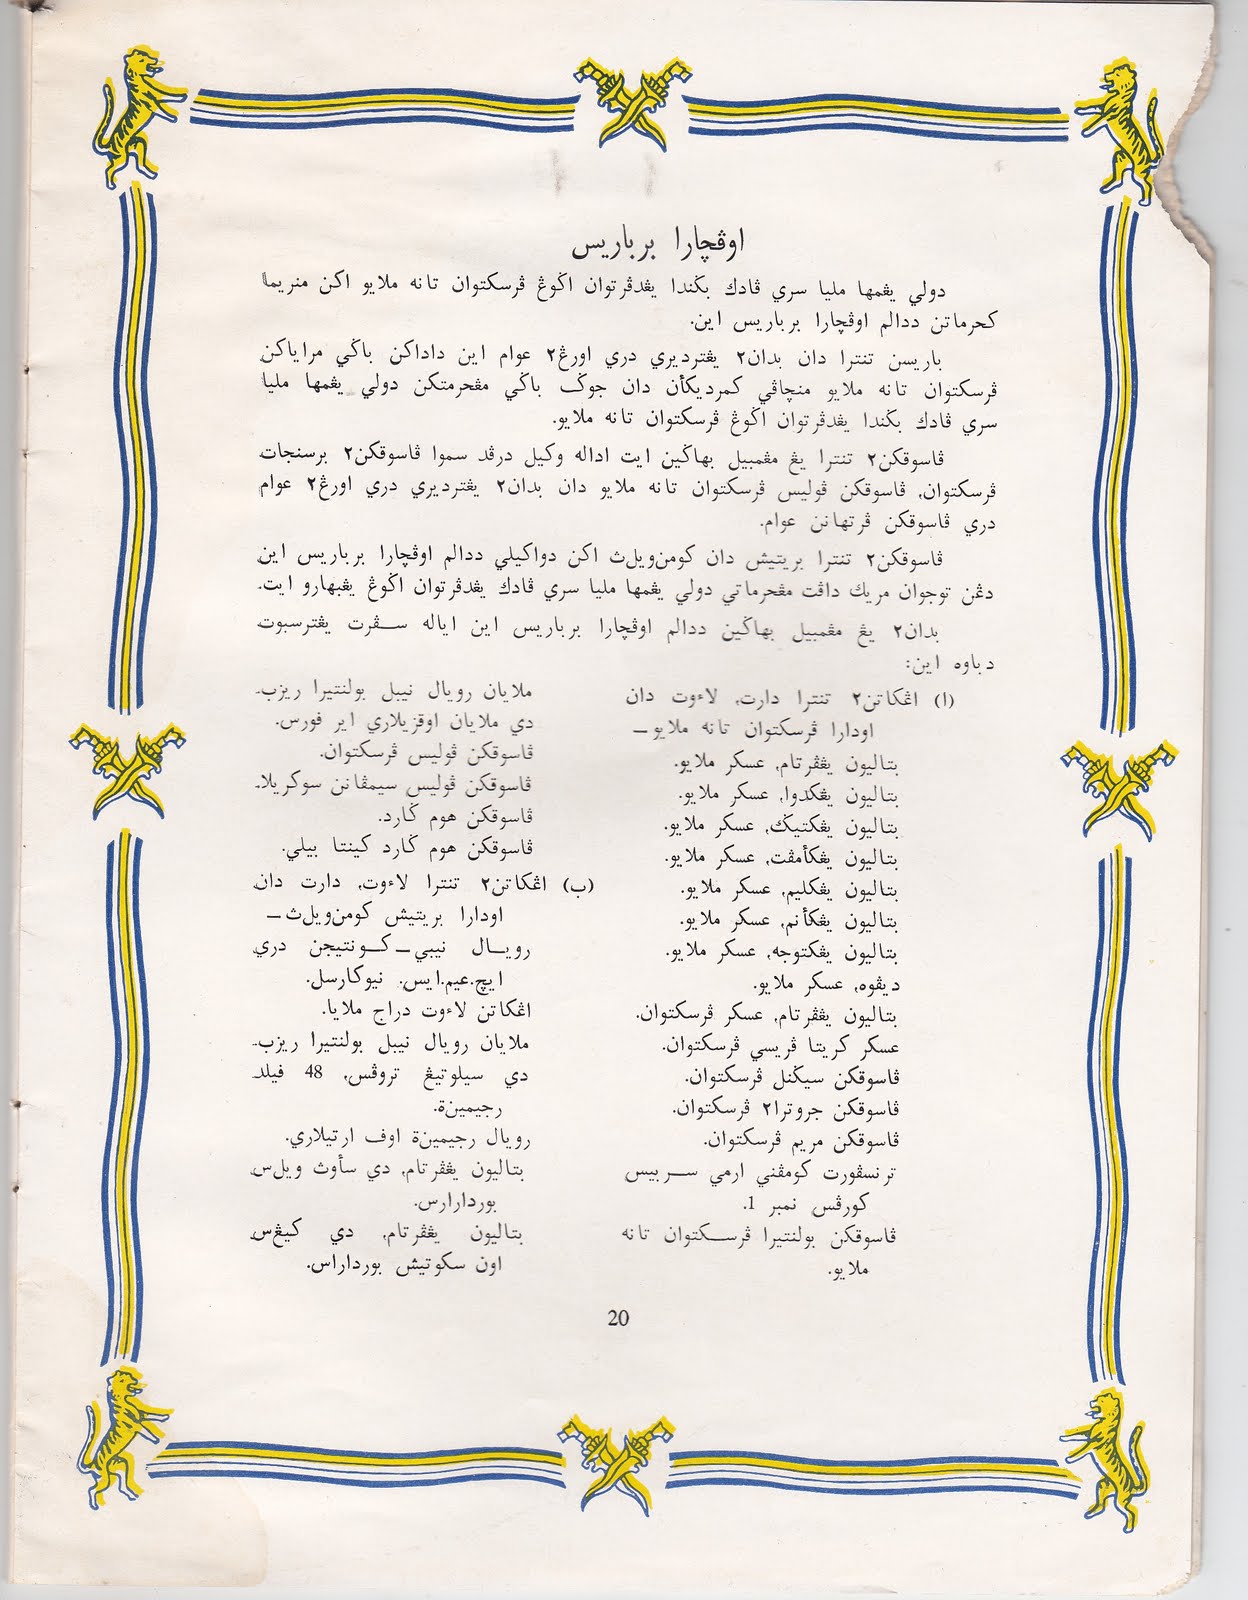 اوڤچارا برباريس
دولي يڠمها مليا سري ڤادك بݢندا يڠدڤرتوان اݢوڠ ڤرسكتوان تانه ملايو اكن منريما
كحرماتن ددالم اوڤچارا برباريس اين.
باريسن تنترا دان بدان٢ يڠترديري دري اورڠ٢ عوام اين داداكن باݢي مراياكن
ڤرسكتوان تانه ملايو منچاڤي كمرديكأن دان جوݢ باݢي مڠحرمتكن دولي يڠمها مليا
سري ڤادك بݢندا يڠدڤرتوان اݢوڠ ڤرسكتوان تانه ملايو.
ڤاسوقكن٢ تنترا يڠ مڠمبيل بهاݢين ايت اداله وكيل درڤد سموا ڤاسوقكن٢ برسنجات
ڤرسكتوان, ڤاسوقكن ڤوليس ڤرسكتوان تانه ملايو دان بدان٢ يڠترديري دري اورڠ٢ عوام
دري ڤاسوقكن ڤرتهانن عوام.
ڤاسوقكن٢ تنترا بريتيش دان كومن‌ويل‌ث اكن دواكيلي ددالم اوڤچارا برباريس اين
دڠن توجوان مريك داڤت مڠحرماتي دولي يڠمها مليا سري ڤادك يڠدڤرتوان اݢوڠ يڠبهارو ايت.
بدان٢ يڠ مڠمبيل بهاݢين ددالم اوڤچارا برباريس اين اياله سـڤرت يڠترسبوت
دباوه اين:
(ا) اڠكاتن٢ تنترا دارت, لاءوت دان
اودارا ڤرسكتوان تانه ملايو —
بتاليون يڠڤرتام, عسكر ملايو.
بتاليون يڠكدوا, عسكر ملايو.
بتاليون يڠكتيݢ, عسكر ملايو.
بتاليون يڠكأمڤت, عسكر ملايو.
بتاليون يڠكليم, عسكر ملايو.
بتاليون يڠكأنم, عسكر ملايو.
بتاليون يڠكتوجه, عسكر ملايو.
ديڤوه, عسكر ملايو.
بتاليون يڠڤرتام, عسكر ڤرسكتوان.
عسكر كريتا ڤريسي ڤرسكتوان.
ڤاسوقكن سيݢنل ڤرسكتوان.
ڤاسوقكن جروترا٢ ڤرسكتوان.
ڤاسوقكن مريم ڤرسكتوان.
ترنسڤورت كومڤني ارمي ســربيس
كورڤس نمبر 1.
ڤاسوقكن بولنتيرا ڤرســكتوان تانه
ملايو.
ملايان رويال نيبل بولنتيرا ريزب.
دي ملايان اوقزيلاري اير فورس.
ڤاسوقكن ڤوليس ڤرسكتوان.
ڤاسوقكن ڤوليس سيمڤانن سوكريلا.
ڤاسوقكن هوم ݢارد.
ڤاسوقكن هوم ݢارد كينتا بيلي.
(ب) اڠكاتن٢ تنترا لاءوت, دارت دان
اودارا بريتيش كومن‌ويل‌ث —
رويــال نيبي—كــونتيجن دري
ايچ.عيم.ايس. نيوكارسل.
اڠكاتن لاءوت دراج ملايا.
ملايان رويال نيبل بولنتيرا ريزب.
دي سيلوتيڠ تروڤس, 48 فيلد
رجيمين‌ة.
رويال رجيمين‌ة اوف ارتيلاري.
بتاليون يڠڤرتام, دي سأوث ويل‌س
بوردارارس.
بتاليون يڠڤرتام, دي كيڠ‌س
اون سكوتيش بورداراس.
20